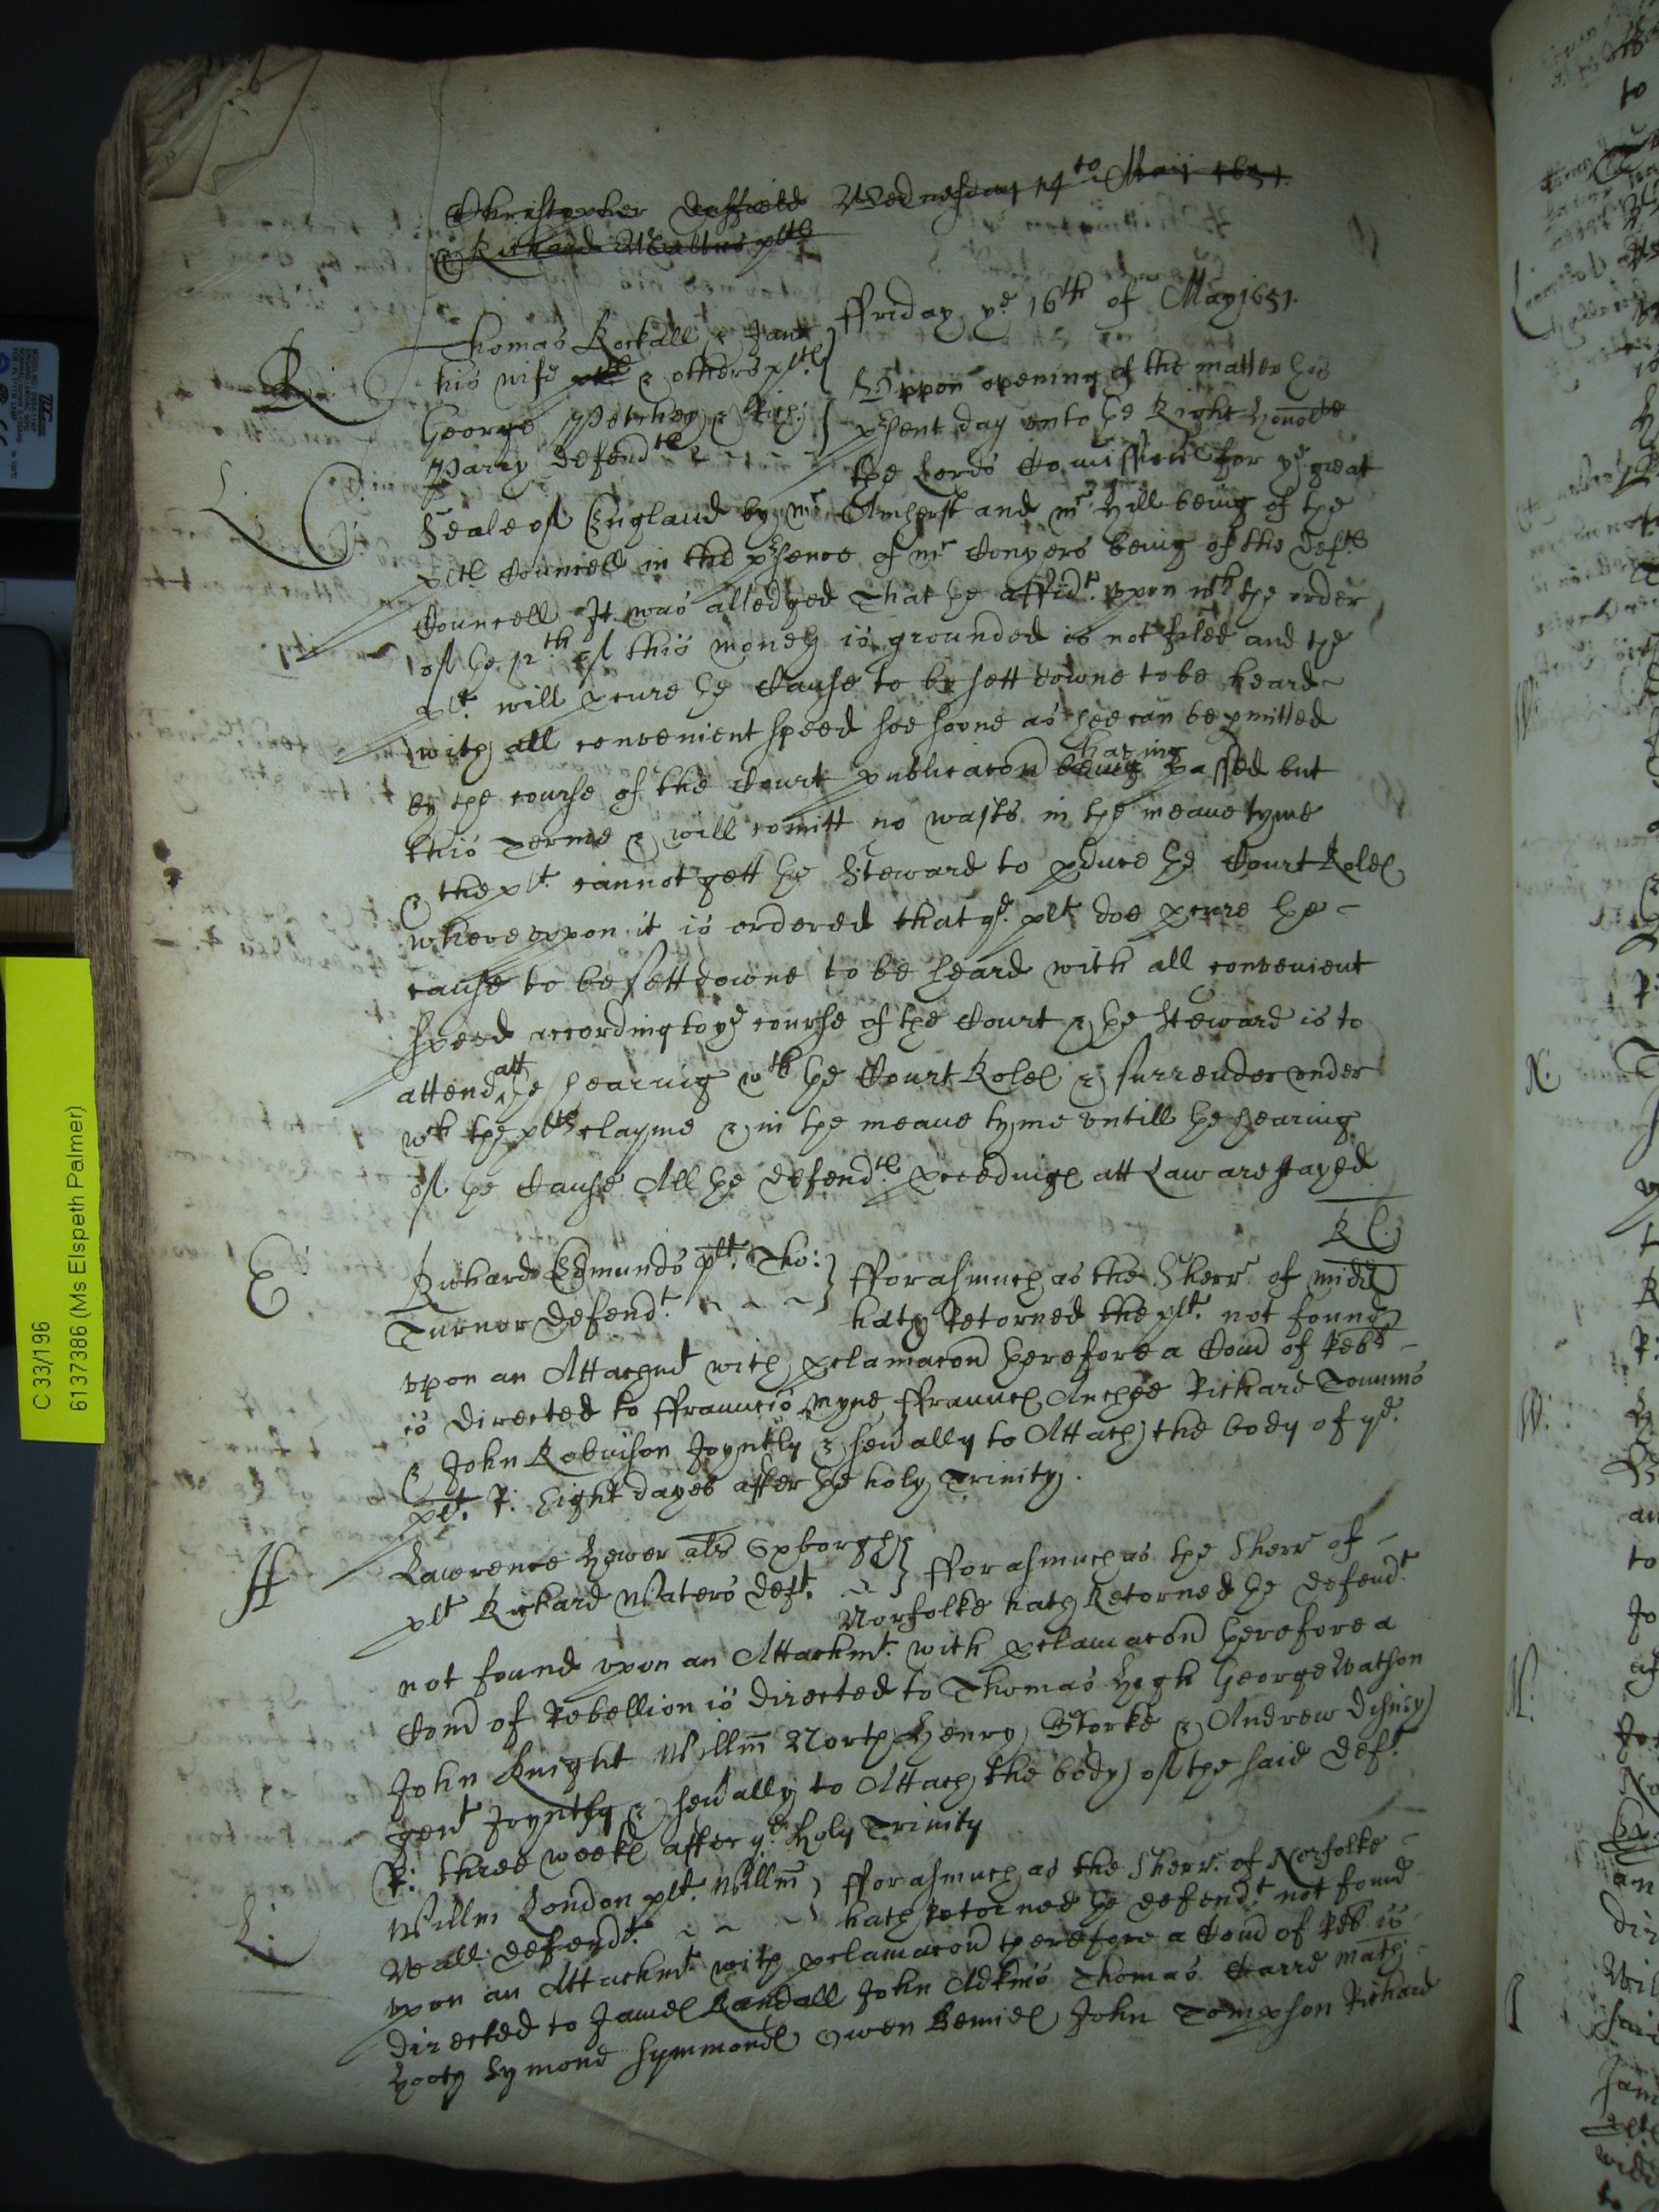 Christopher Duffield Wednesday 14to Maij 1651.
& Richard Walters plts
ffriday ye 16th of May 1651.
R Thomas Rockall & Jane
his wife & others plts
George Petchey & Rich:
Parry defendts
Vppon opening of the matter his
psent day vnto the Right Honoble
L C. the Lords Comissrs for ye great
Seale of England by mr Amherst and mr Hill being of the
plts Councell in the psence of mr Conyers being of the defts
Councell It was alledged That the affidt vpon wch the order
of the 12th of this moneth is grounded is not filed and the
plt will pcure the Cause to be sett downe to be heard
with all convenient speed soe soone as hee can be pmitted
by the course of the Court publicacon being having passed but
this Terme & will comitt no waste in the meane tyme
& the plt cannot gett the Steward to pduce the Court Roles
wherevppon it is ordered that ye plt doe pcure the
cause to be sett downe to be heard with all convenient
speed according to ye course of the Court & the Steward is to
attend att the hearing wth the Court Roles & surrender vnder
wch the plts clayme & in the meane tyme vntill the hearing
of the Cause All the defendts pceedings att Law are stayed
R L
E Richard Edmunds plt Tho:
Turner defendt
fforasmuch as the Sherr of midd
hath Retorned the plt not found
vpon an Attachmt with pclamacon therefore a Com of Reb
is directed to ffrauncis Myne ffraunces Anthee Richard Tomms
& John Robinson Joyntly & seually to Attach the body of ye
plt R: Eight dayes after the holy Trinity.
H Lawrence Hewer als Oxborgh
plt Richard Waters deft.
fforasmuch as the Sherr of
Norfolke hath Retorned the defendt
not found vpon an Attachmt. with pclamacon therefore a
Com of Rebellion is directed to Thomas High George Watson
John Knight Willm North Henry Storke & Andrew Disney
gent Joyntly & seually to Attach the body of the said deft
R: three weekes after ye Holy Trinity
L: Willm London plt. Willm
Veall defendt.
fforasmuch as the Sherr. of Norfolke
hath retorned the defendt not found
vpon an Attachmt with pclamacon therefore a Com of Reb is
directed to James Randall John Adkins Thomas Carre Math:
Hooty Symond Symmonds Owen Bemies John Tompson Richard
C 33/196
6137386 (Ms Elspeth Palmer)